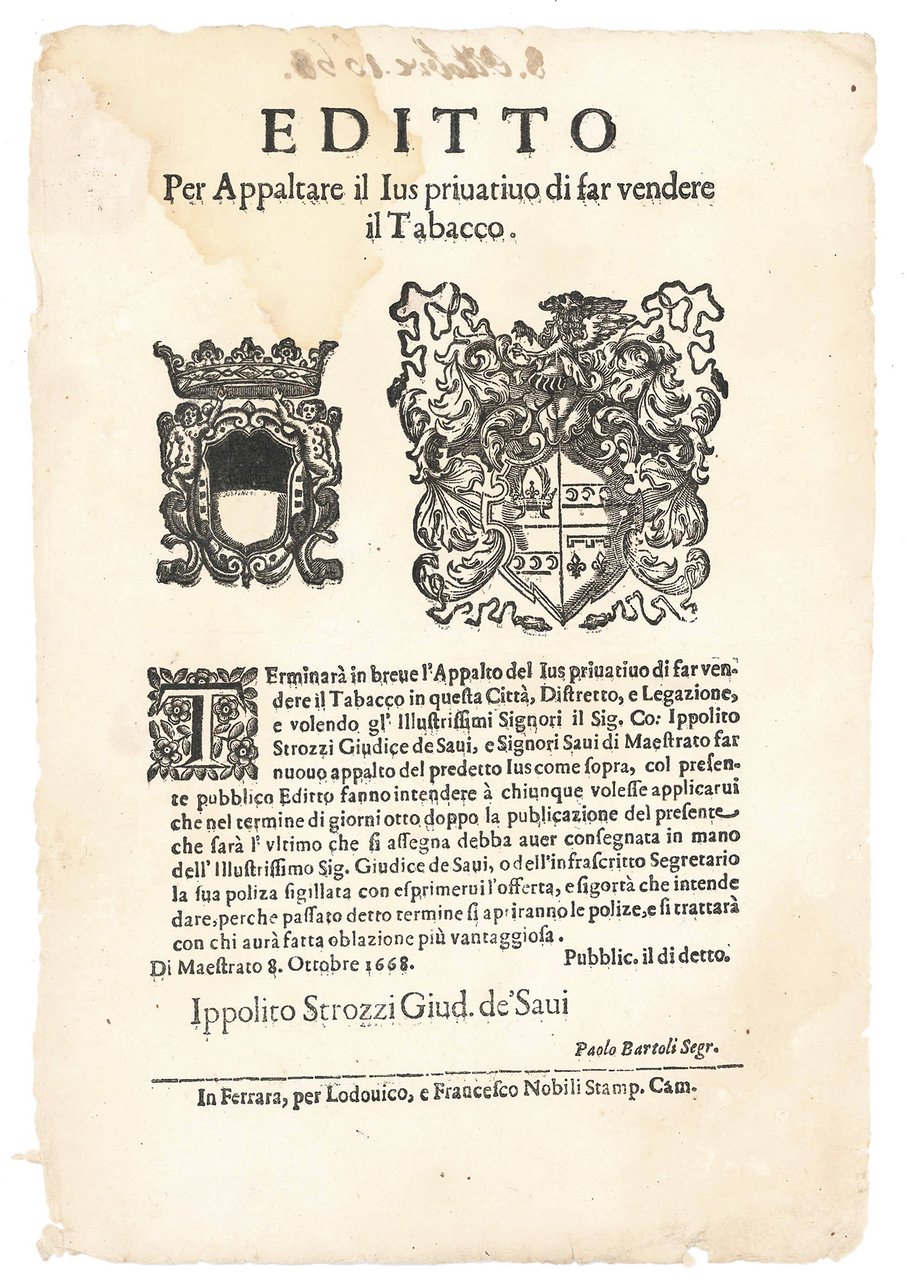 8. Ottobre. 1668.
EDITTO
Per Appaltare il Ius priuatiuo di far vendere
il Tabacco.
TErminarà in breue l'Appalto del Ius priuatiuo di far ven-
dere il Tabacco in queſta Città, Diſtretto, e Legazione,
e volendo gl' Illuſtriſſimi Signori il Sig. Co: Ippolito
Strozzi Giudice de Saui, e Signori Saui di Maeſtrato far
nuouo appalto del predetto Ius come ſopra, col preſen-
te pubblico Editto fanno intendere à chiunque voleſſe applicarui
che nel termine di giorni otto doppo la publicazione del preſente
che ſarà l' vltimo che ſi aſſegna debba auer conſegnata in mano
dell' Illuſtriſſimo Sig. Giudice de Saui, o dell'infraſcritto Segretario
la ſua poliza ſigillata con eſprimerui l'offerta, e ſigortà che intende
dare, perche paſſato detto termine ſi apriranno le polize, e ſi trattarà
con chi aurà fatta oblazione più vantaggioſa.
Di Maeſtrato 8. Ottobre 1668. Pubblic. il di detto.
Ippolito Strozzi Giud. de' Saui
Paolo Bartoli Segr.
In Ferrara, per Lodouico, e Franceſco Nobili Stamp. Cam.